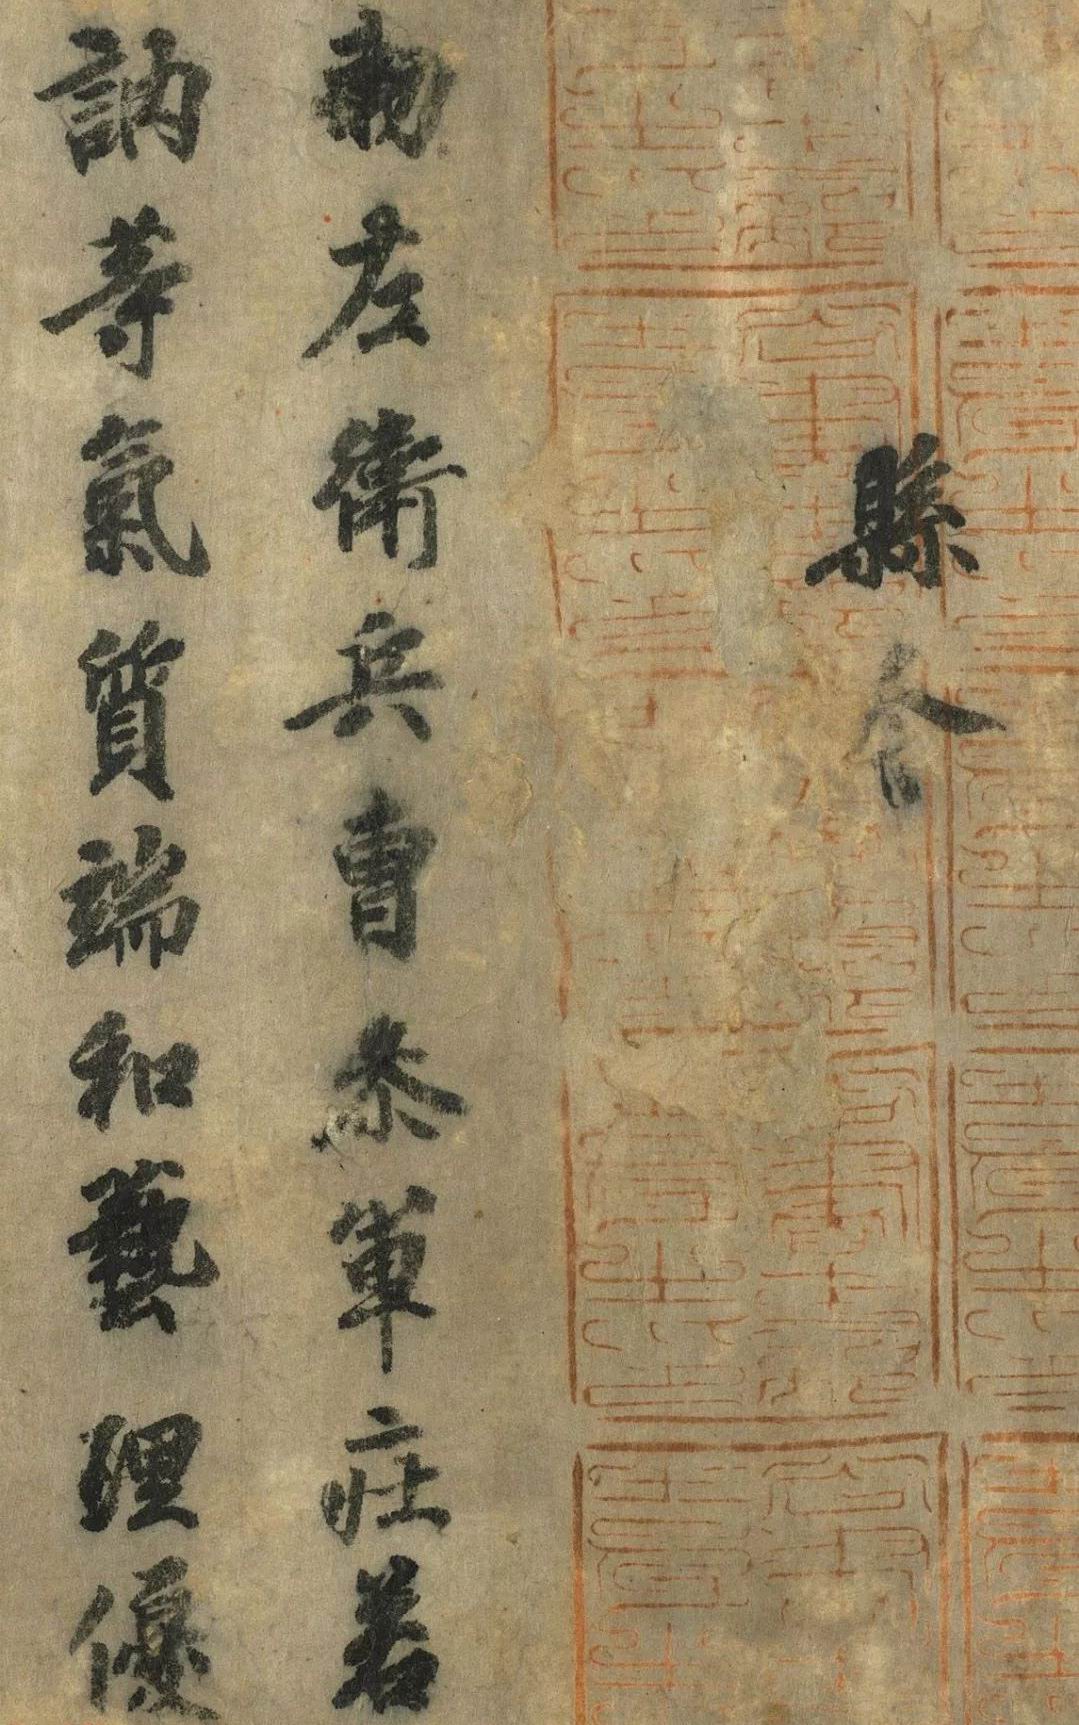 縣令
勑左衛兵曹叅軍莊若
訥等氣質端和藝理優